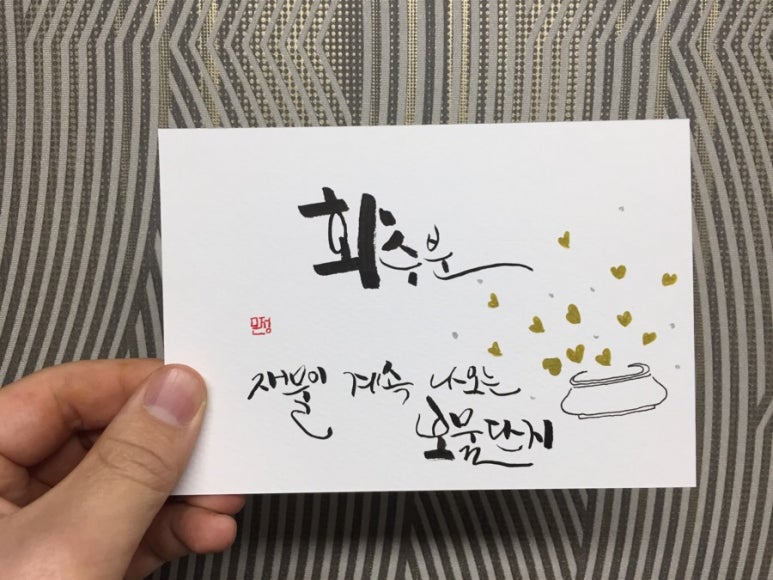 화수분
민정
재물이 계속 나오는
보물단지